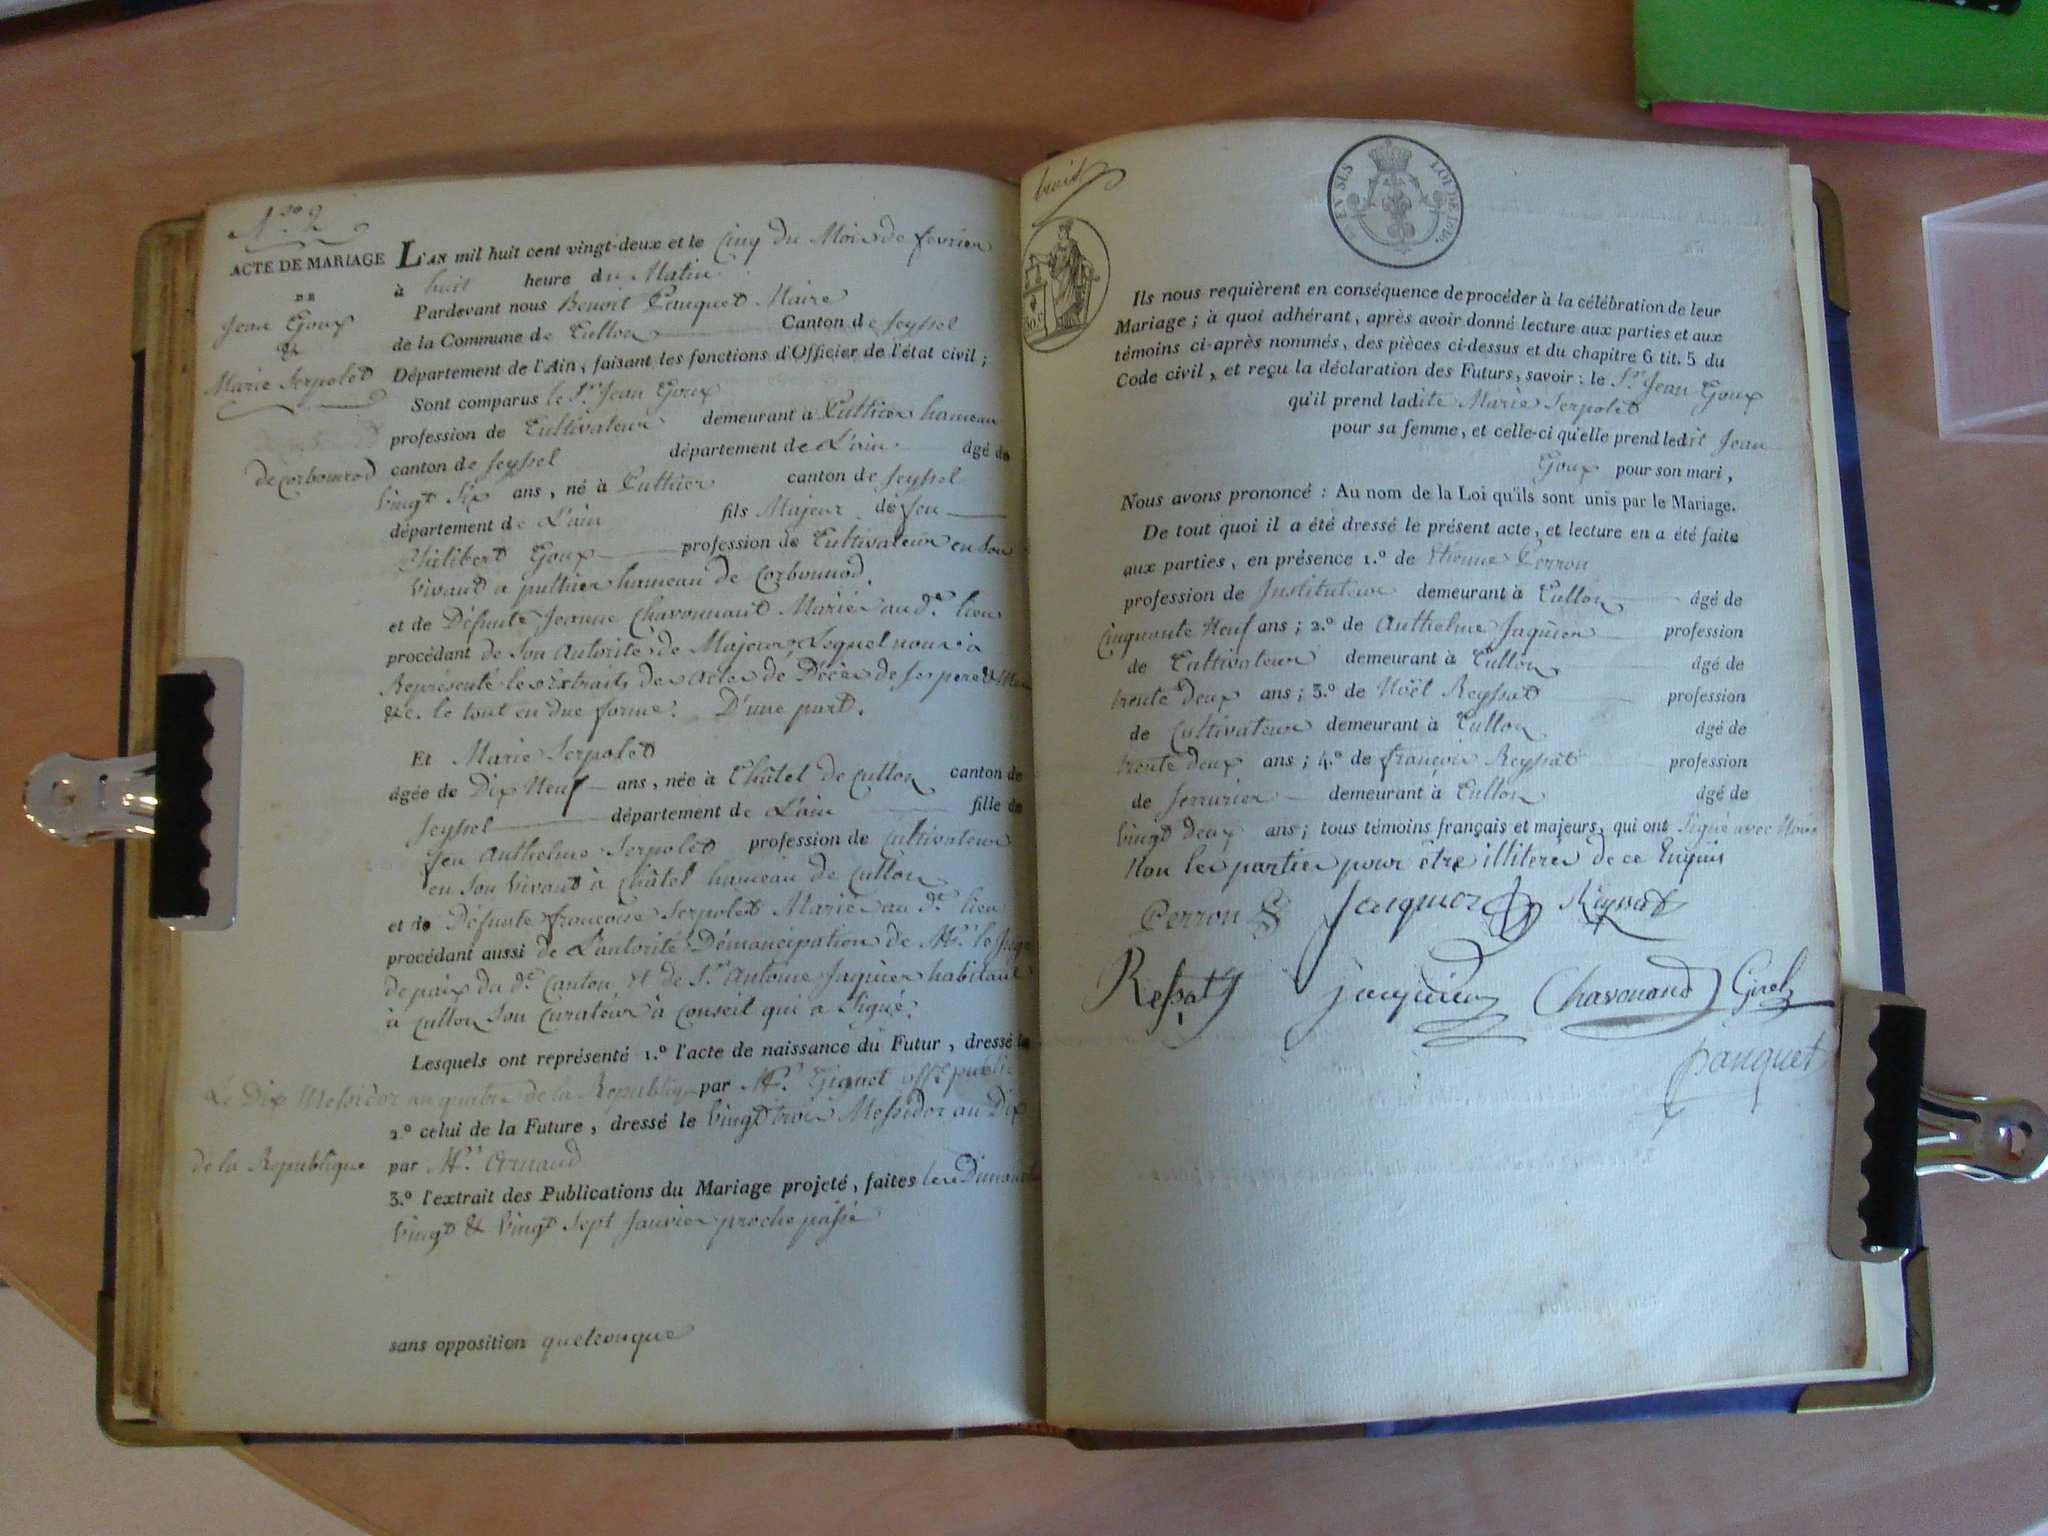 N.º 2
ACTE DE MARIAGE
DE
Jean Goux
&
Marie Serpoled
L'AN mil huit cent vingt-deux et le Cinq du Mois de fevrier
à huit heure du Matin
Pardevant nous Benoit Panquet Maire
de la Commune de Culloz Canton de Seyssel
Département de l'Ain, faisant les fonctions d'Officier de l'état civil;
Sont comparus le S.r Jean Goux
profession de Cultivateur demeurant à Puthier hameau
de Corbounod canton de Seyssel département de L'ain âgé de
vingt Six ans, né à Puthier canton de Seyssel
département de L'ain fils Majeur de feu
Philibert Goux profession de Cultivateur en Son
vivant a puthier hameau de Corbounod.
et de Défunte Jeanne Chavonnand Mariés au d.t lieu
procédant de Son Autorité de Majeur, Lequel nous a
Représenté les Extraits des actes de Décès de Ses pere & Mere
&c. le tout en due forme. D'une part.
Et Marie Serpoled
âgée de Dix Neuf ans, née à Châtel de Culloz canton de
Seyssel département de L'ain fille de
feu Anthelme Serpoled profession de Cultivateur
en Son vivant à Châtel hameau de Culloz
et de Défunte françoise Serpoled Mariés au d.t lieu
procédant aussi de L'autorité D'émancipation de M.r le Juge
de paix du d.t Canton, et de S.r Antoine Jaquier habitant
à Culloz Son Curateur à Conseil qui a Signé.
Lesquels ont représenté 1.º l'acte de naissance du Futur, dressé le
Le Dix Messidor an quatre de la Republiq par M.r Gignet off.r public
2.º celui de la Future, dressé le vingt trois Messidor an Dix
de la Republique par M.r Arnaud
3.º l'extrait des Publications du Mariage projeté, faites les Dimanches
vingt & vingt Sept Janvier proche passé
sans opposition quelconque
huit
LOI DE
Ils nous requièrent en conséquence de procéder à la célébration de leur
Mariage; à quoi adhérant, après avoir donné lecture aux parties et aux
témoins ci-après nommés, des pièces ci-dessus et du chapitre 6 tit. 5 du
Code civil, et reçu la déclaration des Futurs, savoir: le S.r Jean Goux
qu'il prend ladite Marie Serpoled
pour sa femme, et celle-ci qu'elle prend ledit Jean
Goux pour son mari,
Nous avons prononcé: Au nom de la Loi qu'ils sont unis par le Mariage.
De tout quoi il a été dressé le présent acte, et lecture en a été faite
aux parties, en présence 1.º de Etienne Perron
profession de Instituteur demeurant à Culloz âgé de
Cinquante Neuf ans; 2.º de Anthelme Jaquier profession
de Cultivateur demeurant à Culloz âgé de
trente deux ans; 3.º de Noël Reyssat profession
de Cultivateur demeurant à Culloz âgé de
trente deux ans; 4.º de françois Reyssat profession
de Serrurier demeurant à Culloz âgé de
vingt deux ans; tous témoins français et majeurs, qui ont Signé avec Nous
Non les parties pour être illiterés de ce Enquis
Perron Jaquier
Ressat Jaquier Chavonand Girel
Panquet